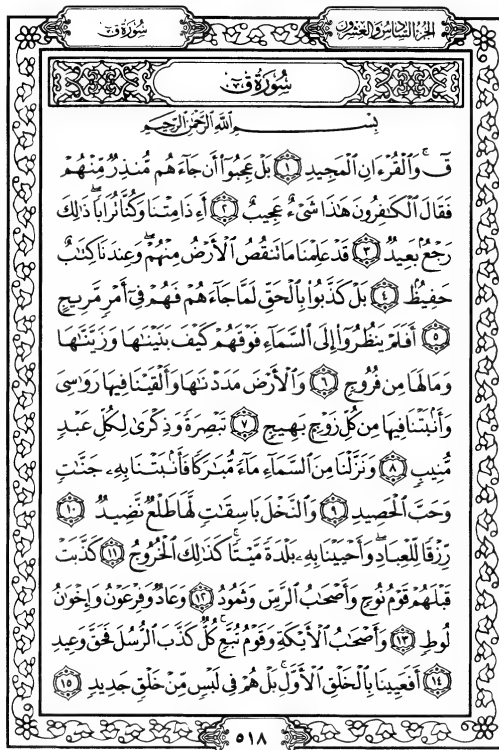 سُورَةُ ق
الجزء السادس والعشرون
سُورَةُ ق
بِسْمِ اللَّهِ الرَّحْمَٰنِ الرَّحِيمِ
قٓ ۚ وَالْقُرْءَانِ الْمَجِيدِ ١ بَلْ عَجِبُوٓا۟ أَن جَآءَهُم مُّنذِرٌ مِّنْهُمْ
فَقَالَ الْكَٰفِرُونَ هَٰذَا شَىْءٌ عَجِيبٌ ٢ أَءِذَا مِتْنَا وَكُنَّا تُرَابًا ۖ ذَٰلِكَ
رَجْعٌۢ بَعِيدٌ ٣ قَدْ عَلِمْنَا مَا تَنقُصُ الْأَرْضُ مِنْهُمْ ۖ وَعِندَنَا كِتَٰبٌ
حَفِيظٌۢ ٤ بَلْ كَذَّبُوا۟ بِالْحَقِّ لَمَّا جَآءَهُمْ فَهُمْ فِىٓ أَمْرٍ مَّرِيجٍ
٥ أَفَلَمْ يَنظُرُوٓا۟ إِلَى السَّمَآءِ فَوْقَهُمْ كَيْفَ بَنَيْنَٰهَا وَزَيَّنَّٰهَا
وَمَا لَهَا مِن فُرُوجٍ ٦ وَالْأَرْضَ مَدَدْنَٰهَا وَأَلْقَيْنَا فِيهَا رَوَٰسِىَ
وَأَنۢبَتْنَا فِيهَا مِن كُلِّ زَوْجٍۭ بَهِيجٍ ٧ تَبْصِرَةً وَذِكْرَىٰ لِكُلِّ عَبْدٍ
مُّنِيبٍ ٨ وَنَزَّلْنَا مِنَ السَّمَآءِ مَآءً مُّبَٰرَكًا فَأَنۢبَتْنَا بِهِۦ جَنَّٰتٍ
وَحَبَّ الْحَصِيدِ ٩ وَالنَّخْلَ بَاسِقَٰتٍ لَّهَا طَلْعٌ نَّضِيدٌ ١٠
رِّزْقًا لِّلْعِبَادِ ۖ وَأَحْيَيْنَا بِهِۦ بَلْدَةً مَّيْتًا ۚ كَذَٰلِكَ الْخُرُوجُ ١١ كَذَّبَتْ
قَبْلَهُمْ قَوْمُ نُوحٍ وَأَصْحَٰبُ الرَّسِّ وَثَمُودُ ١٢ وَعَادٌ وَفِرْعَوْنُ وَإِخْوَٰنُ
لُوطٍ ١٣ وَأَصْحَٰبُ الْأَيْكَةِ وَقَوْمُ تُبَّعٍ ۚ كُلٌّ كَذَّبَ الرُّسُلَ فَحَقَّ وَعِيدِ
١٤ أَفَعَيِينَا بِالْخَلْقِ الْأَوَّلِ ۚ بَلْ هُمْ فِى لَبْسٍ مِّنْ خَلْقٍ جَدِيدٍ ١٥
٥١٨